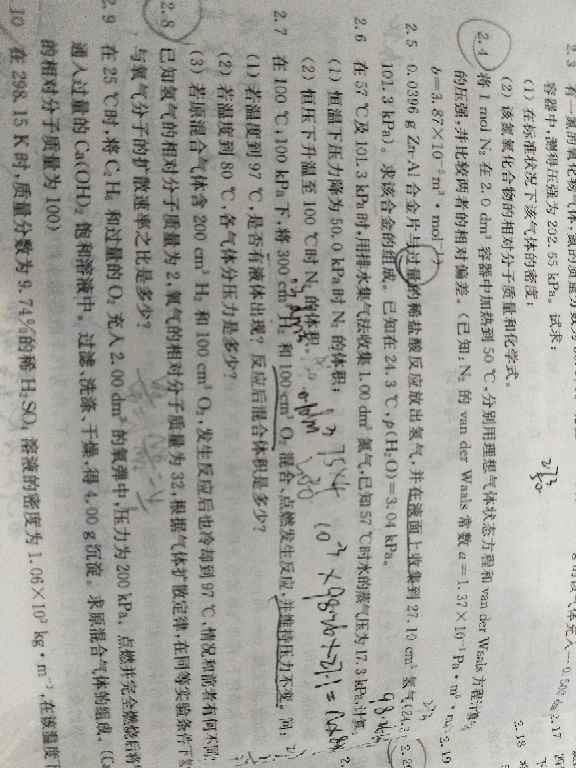 2.3 有一氮的氧化物气体,氮的质量分数
容器中,测得压强为 202.65 kPa。试求:
(1) 在标准状况下该气体的密度;
(2) 该氮氧化合物的相对分子质量和化学式。
2.4 将 1 mol N₂ 在 2.0 dm³ 容器中加热到 50 ℃,分别用理想气体状态方程和 van der Waals 方程计算
的压强,并比较两者的相对偏差。(已知:N₂ 的 van der Waals 常数 a=1.37×10⁻¹ Pa·m⁶
b=3.87×10⁻⁵ m³·mol⁻¹)
2.5 0.0396 g Zn-Al 合金片与过量的稀盐酸反应放出氢气,并在液面上收集到 27.10 cm³ 氢气(24.3
101.3 kPa)。求该合金的组成。已知在 24.3 ℃,p(H₂O)=3.04 kPa。
2.6 在 57 ℃及 101.3 kPa 时,用排水集气法收集 1.00 dm³ 氮气,已知 57 ℃时水的蒸气压为 17.3 kPa,计算
(1) 恒温下压力降为 50.0 kPa 时 N₂ 的体积;
(2) 恒压下升温至 100 ℃时 N₂ 的体积。
2.7 在 100 ℃,100 kPa 下,将 300 cm³ H₂ 和 100 cm³ O₂ 混合,点燃发生反应,并维持压力不变。问:
(1) 若温度到 97 ℃,是否有液体出现?反应后混合体积是多少?
(2) 若温度到 80 ℃,各气体分压力是多少?
(3) 若原混合气体含 200 cm³ H₂ 和 100 cm³ O₂,发生反应后也冷却到 97 ℃,情况和前者有何不同?
2.8 已知氢气的相对分子质量为 2,氧气的相对分子质量为 32,根据气体扩散定律,在同等实验条件下
与氧气分子的扩散速率之比是多少?
2.9 在 25 ℃时,将 C₂H₆ 和过量的 O₂ 充入 2.00 dm³ 的氧弹中,压力为 200 kPa。点燃并完全燃烧后将
通入过量的 Ca(OH)₂ 饱和溶液中。过滤、洗涤、干燥,得 4.00 g 沉淀。求原混合气体的组成。
的相对分子质量为 100)
10 在 298.15 K 时,质量分数为 9.74%的稀 H₂SO₄ 溶液的密度为 1.06×10³ kg·m⁻³,在该温度下
2.17
2.18
2.19